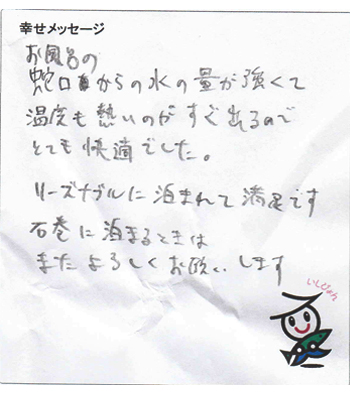 幸せメッセージ
お風呂の
蛇口からの水の量が強くて
温度も熱いのがすぐ出るので
とても快適でした。
リーズナブルに泊まれて満足です
石巻に泊まるときは
またよろしくお願いします
いしぴょん